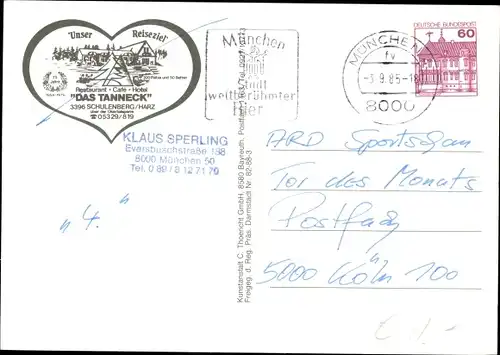 "Unser Reiseziel"
Restaurant - Cafe - Hotel
"DAS TANNECK"
3396 SCHULENBERG/HARZ
☎ 05329/819
KLAUS SPERLING
Eversbuschstraße 158
8000 München 50
Tel. 0 89 / 8 12 71 70
"4."
Kunstanstalt C. Thoericht GmbH, 8580 Bayreuth, Postfach
Freigeg. d. Reg. Präs. Darmstadt Nr.
München
Stadt
weltberühmter
Bier
MÜNCHEN
fv
-3.9.85-18
8000
DEUTSCHE BUNDESPOST
60
ARD Sportschau
Tor des Monats
Postfach
5000 Köln 100
€ 1.-